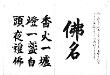 佛名
香火一爐
燈一盞白
頭夜禮佛